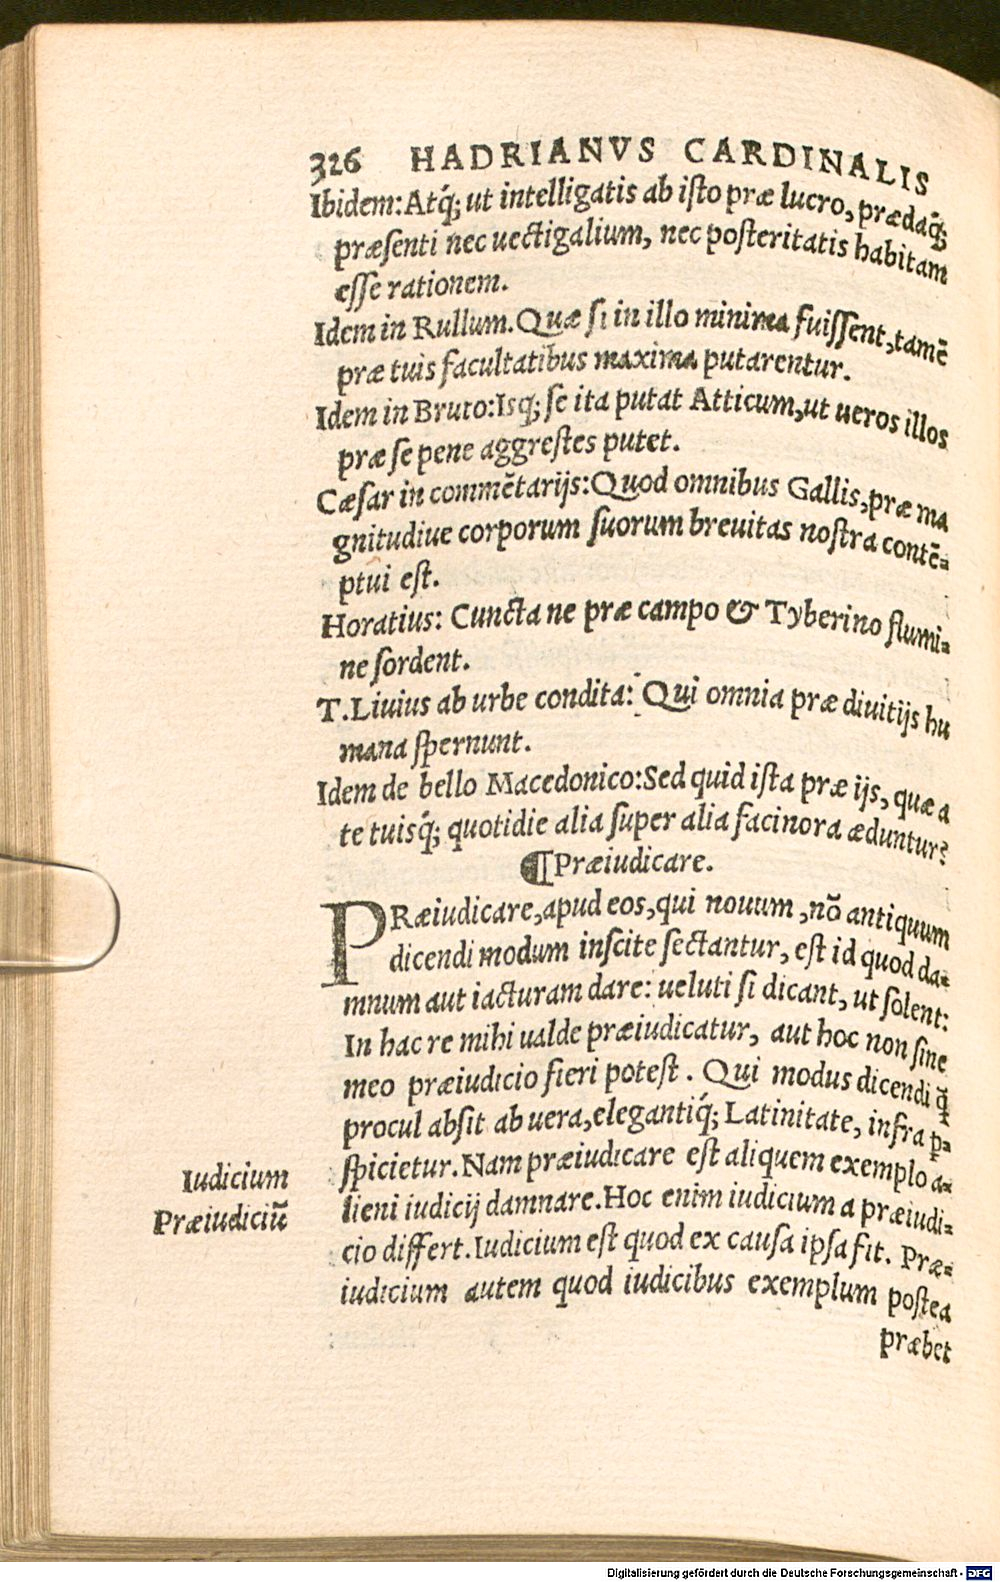 326 HADRIANVS CARDINALIS
Ibidem: Atq́; ut intelligatis ab iſto præ lucro, prædaq́;
præſenti nec uectigalium, nec poſteritatis habitam
eſſe rationem.
Idem in Rullum. Quæ ſi in illo minima fuiſſent, tamē
præ tuis facultatibus maxima putarentur.
Idem in Bruto: Isq; ſe ita putat Atticum, ut ueros illos
præ ſe pene aggreſtes putet.
Cæſar in commētarijs: Quod omnibus Gallis, præ ma
gnitudiue corporum ſuorum breuitas noſtra contē-
ptui eſt.
Horatius: Cuncta ne præ campo & Tyberino flumi-
ne ſordent.
T. Liuius ab urbe condita: Qui omnia præ diuitijs hu
mana ſpernunt.
Idem de bello Macedonico: Sed quid iſta præ ijs, quæ a
te tuisq́; quotidie alia ſuper alia facinora æduntur?
¶ Præiudicare.
PRæiudicare, apud eos, qui nouum, nō antiquum
dicendi modum inſcite ſectantur, eſt id quod da-
mnum aut iacturam dare: ueluti ſi dicant, ut ſolent:
In hac re mihi ualde præiudicatur, aut hoc non ſine
meo præiudicio fieri poteſt. Qui modus dicendi q̄
procul abſit ab uera, elegantiq́; Latinitate, infra ꝑ-
ſpicietur. Nam præiudicare eſt aliquem exemplo a-
lieni iudicij damnare. Hoc enim iudicium a præiudi-
cio differt. Iudicium eſt quod ex cauſa ipſa fit. Præ-
iudicium autem quod iudicibus exemplum poſtea
præbet
Iudicium
Præiudiciū
Digitalisierung gefördert durch die Deutsche Forschungsgemeinschaft - DFG